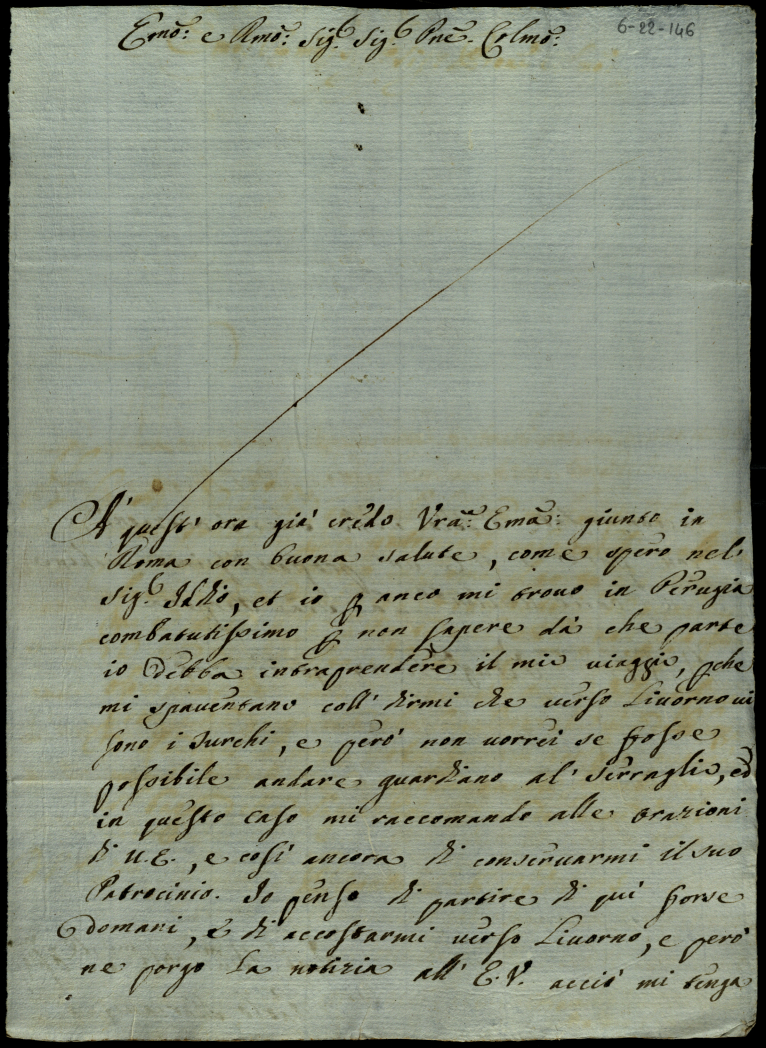 Emo: e Rmo: Sig.r Sig.r Pne. Colmo:
6-22-146
A' quest' ora già credo Vra: Ema: giunto in
Roma con buona salute, come spero nel
Sig.r Iddio, et io p anco mi trovo in Perugia
combatutissimo p non sapere da che parte
io debba intraprendere il mio viaggio, pche
mi spaventano coll' dirmi che verso Livorno vi
sono i Turchi, e però non vorrei se fosse
possibile andare guardiano al' Serraglio, ed
in questo caso mi raccomando alle orazioni
di V.E., e così ancora di conservarmi il suo
Patrocinio. Io penso di partire di quì forse
domani, e di accostarmi verso Livorno, e però
ne porgo la notizia all' E.V. acciò mi tenga